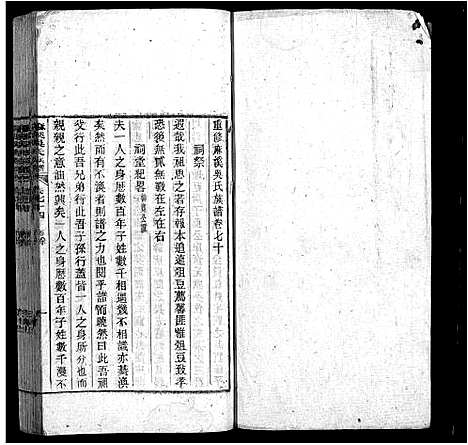 重修麻溪吳氏族譜卷七十
祠祭
遐哉我祖思之若存報本追遠俎豆薦馨匪維俎豆致孝
恐後無貳無戰在左在右
祠堂紀畧
夫一人之身歷數百年子姓數千相遇幾不相識亦綦渙
矣然而有不渙者則譜之力也閱乎譜而曉然曰此吾祖
行此吾兄弟行此吾子孫行蓋皆一人之身所分也而
親親之意油然興矣一人之身歷數百年子姓數千漫不